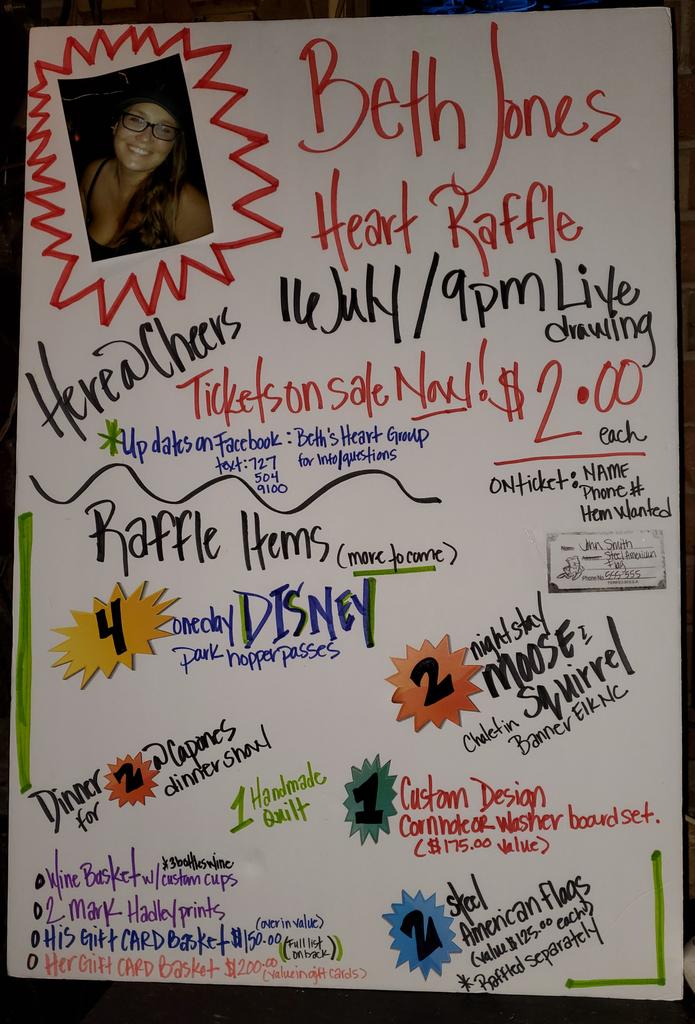 Beth Jones
Heart Raffle
16 July / 9pm Live
drawing
Here @ Cheers
Tickets on sale Now! $2.00
each
*Updates on Facebook: Beth's Heart Group
text: 727 for Info/questions
504
9100
ON ticket: NAME
Phone #
Item Wanted
John Smith
Steel American
Flag
Phone No. 555-555
Raffle Items (more to come)
4 one day DISNEY
park hopper passes
2 night stay
MOOSE &
Squirrel
Chalet in
Banner Elk NC
Dinner for 2 @ Capones
dinner show
1 Handmade
Quilt
1 Custom Design
Cornhole OR Washer board set.
($175.00 value)
Wine Basket w/ custom cups
*3 bottles wine
2 Mark Hadley prints
His Gift CARD Basket $150.00 (over in value)
(Full list on back)
Her Gift CARD Basket $200.00 (value in gift cards)
2 steel
American flags
(value $125.00 each)
* Raffled separately